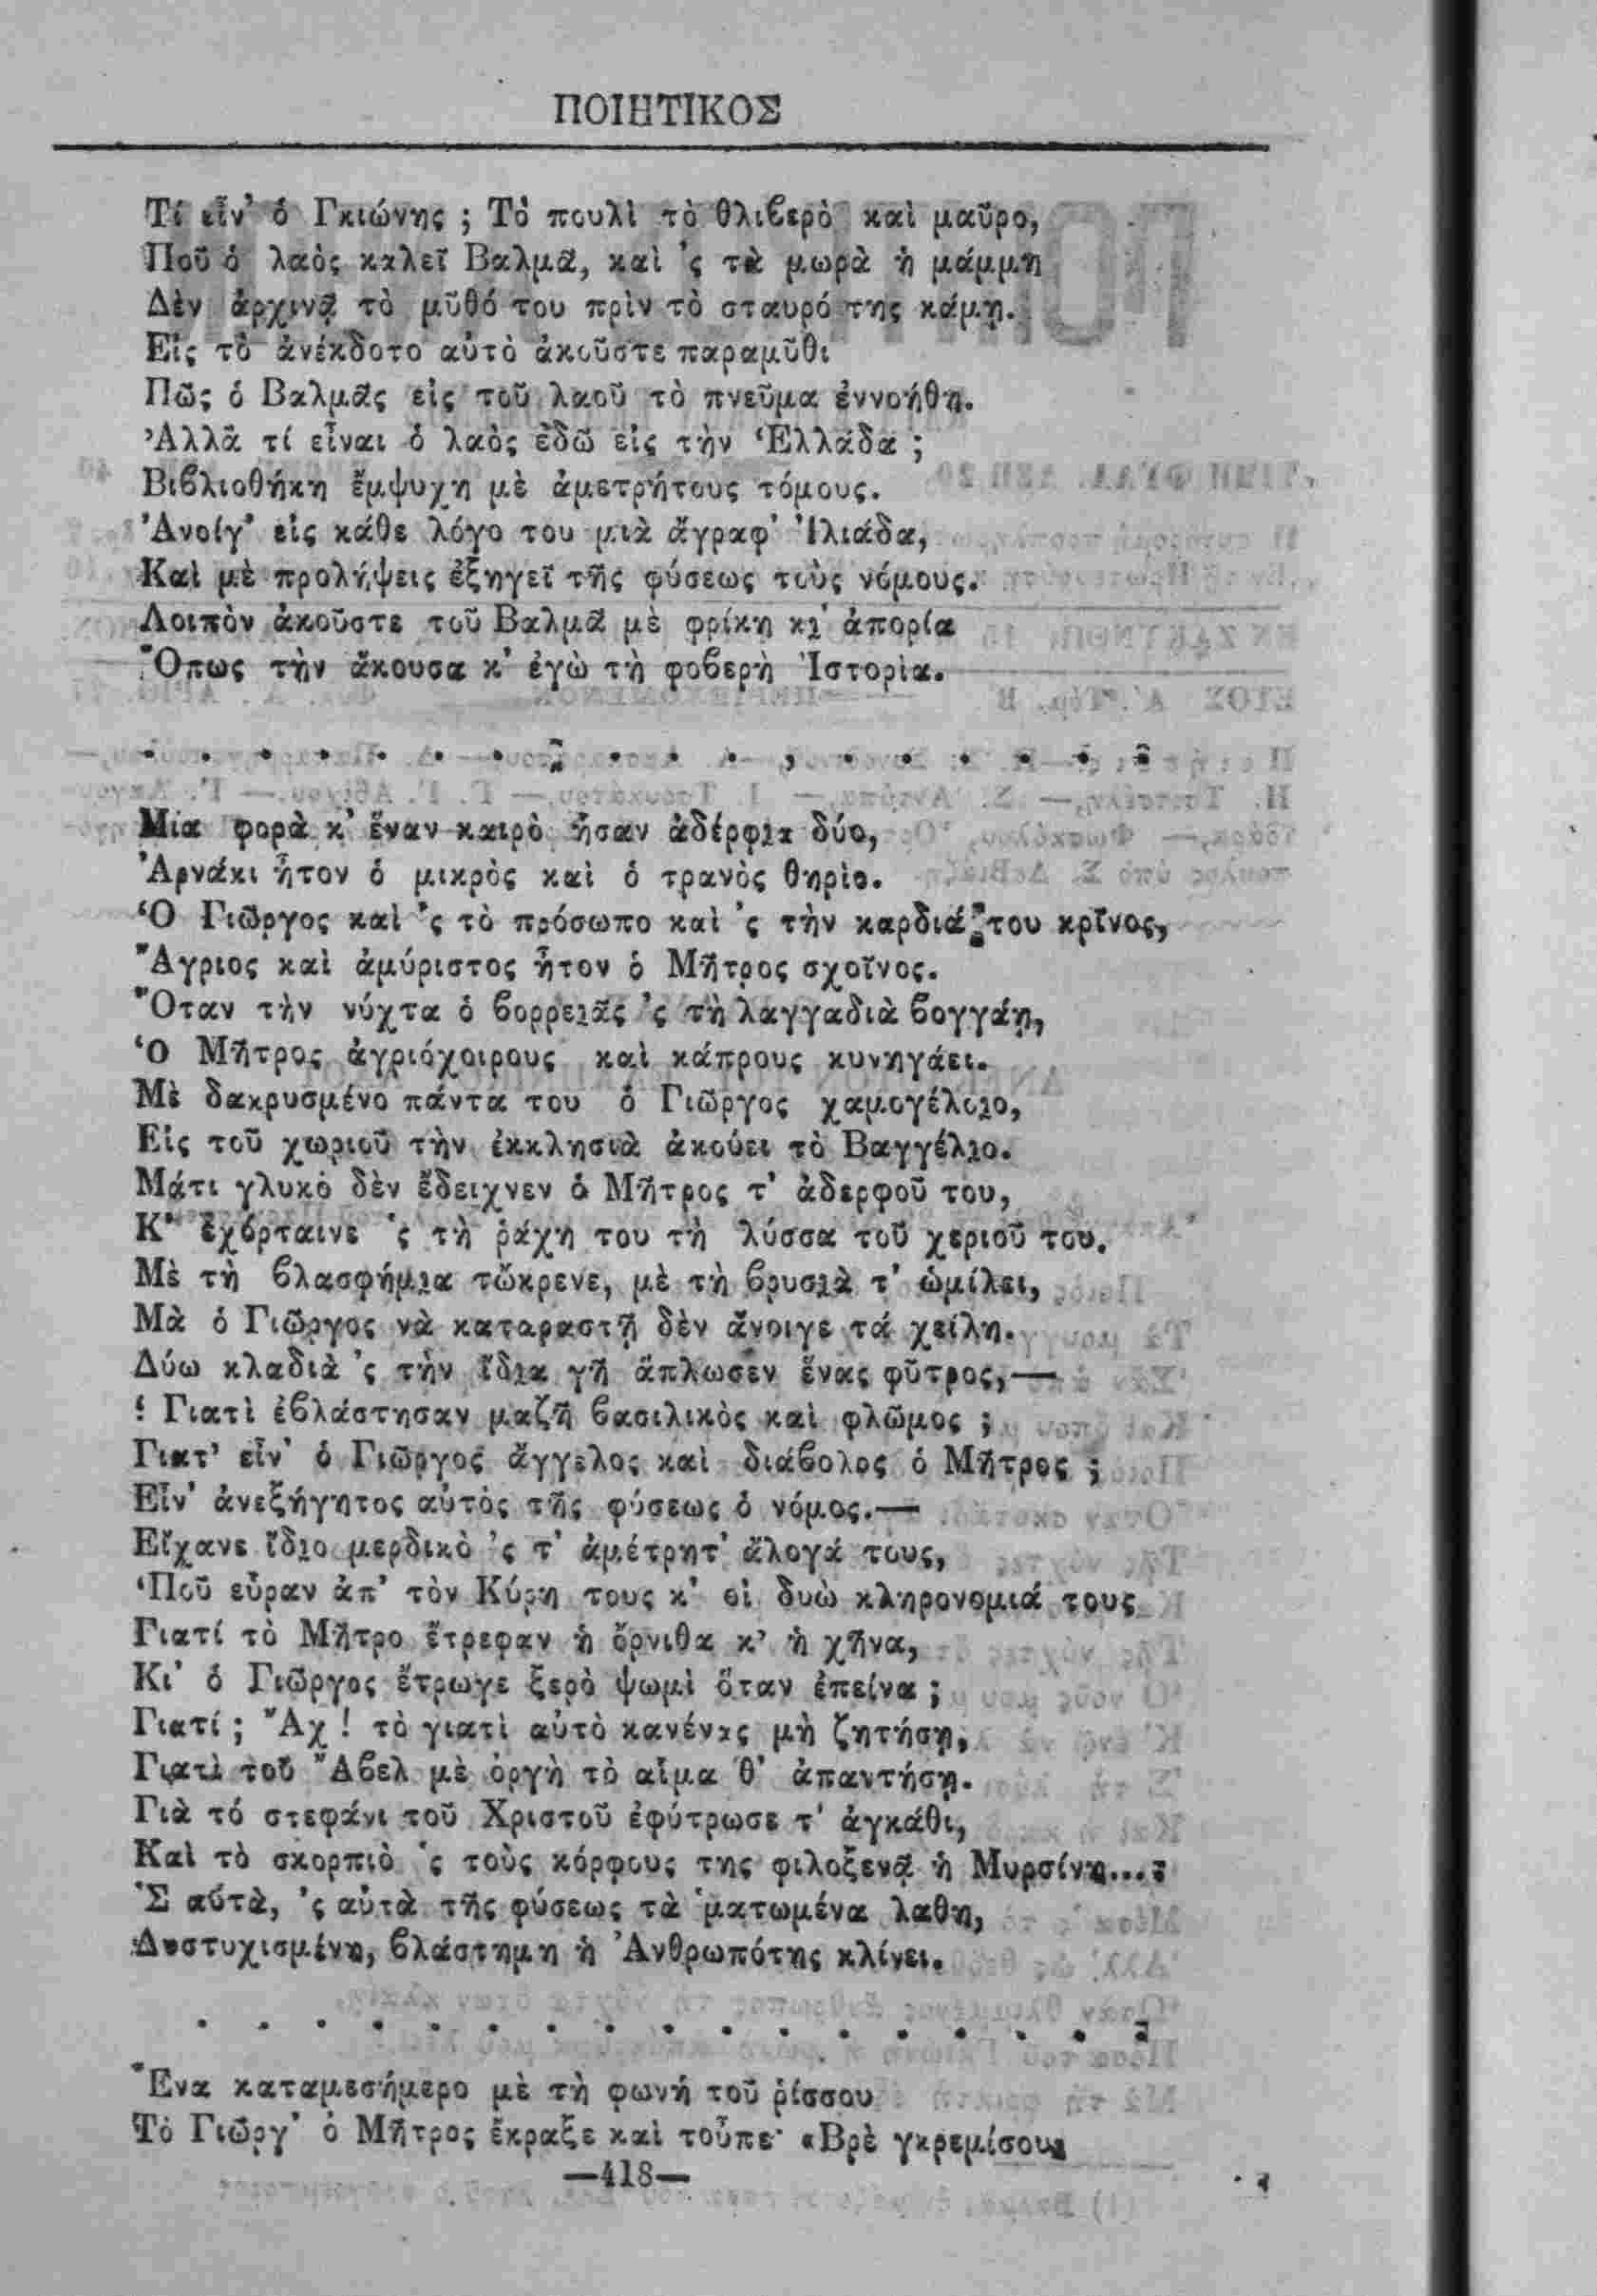 ΠΟΙΗΤΙΚΟΣ
Τί εἶν' ὁ Γκιώνης ; Τὸ πουλὶ τὸ θλιβερὸ καὶ μαῦρο,
Ποῦ ὁ λαὸς καλεῖ Βαλμᾶ, καὶ 'ς τὰ μωρὰ ἡ μάμμη
Δὲν ἀρχινᾷ τὸ μῦθό του πρὶν τὸ σταυρό της κάμῃ.
Εἰς τὸ ἀνέκδοτο αὐτὸ ἀκοῦστε παραμῦθι
Πῶς ὁ Βαλμᾶς εἰς τοῦ λαοῦ τὸ πνεῦμα ἐννοήθη.
Ἀλλὰ τί εἶναι ὁ λαὸς ἐδῶ εἰς τὴν Ἑλλάδα ;
Βιβλιοθήκη ἔμψυχη μὲ ἀμετρήτους τόμους.
Ἀνοίγ' εἰς κάθε λόγο του μιὰ ἄγραφ' Ἰλιάδα,
Καὶ μὲ προλήψεις ἐξηγεῖ τῆς φύσεως τοὺς νόμους.
Λοιπὸν ἀκοῦστε τοῦ Βαλμᾶ μὲ φρίκη κι' ἀπορία
Ὅπως τὴν ἄκουσα κ' ἐγὼ τὴ φοβερὴ Ἱστορία.
. . . . . . . . . . . . . . . . . .
Μία φορὰ κ' ἕναν καιρὸ ἦσαν ἀδέρφια δύο,
Ἀρνάκι ἦτον ὁ μικρὸς καὶ ὁ τρανὸς θηρίο.
Ὁ Γιῶργος καὶ 'ς τὸ πρόσωπο καὶ 'ς τὴν καρδιά του κρῖνος,
Ἄγριος καὶ ἀμύριστος ἦτον ὁ Μῆτρος σχοῖνος.
Ὅταν τὴν νύχτα ὁ βορρειᾶς 'ς τὴ λαγγαδιὰ βογγάῃ,
Ὁ Μῆτρος ἀγριόχοιρους καὶ κάπρους κυνηγάει.
Μὲ δακρυσμένο πάντα του ὁ Γιῶργος χαμογέλοιο,
Εἰς τοῦ χωριοῦ τὴν ἐκκλησιὰ ἀκούει τὸ Βαγγέλιο.
Μάτι γλυκὸ δὲν ἔδειχνεν ὁ Μῆτρος τ' ἀδερφοῦ του,
Κ' ἐχόρταινε 'ς τὴ ῥάχη του τὴ λύσσα τοῦ χεριοῦ του.
Μὲ τὴ βλασφήμια τὤκρενε, μὲ τὴ βρυσιὰ τ' ὡμίλει,
Μὰ ὁ Γιῶργος νὰ καταραστῇ δὲν ἄνοιγε τά χείλη.
Δύω κλαδιὰ 'ς τὴν ἴδια γῆ ἅπλωσεν ἕνας φῦτρος,—
! Γιατὶ ἐβλάστησαν μαζῆ βασιλικὸς καὶ φλῶμος ;
Γιατ' εἶν' ὁ Γιῶργος ἄγγελος καὶ διάβολος ὁ Μῆτρος ;
Εἶν' ἀνεξήγητος αὐτὸς τῆς φύσεως ὁ νόμος.—
Εἴχανε ἴδιο μερδικὸ 'ς τ' ἀμέτρητ' ἄλογά τους,
Ποῦ εὗραν ἀπ' τὸν Κύρη τους κ' οἱ δυὼ κληρονομιά τους
Γιατί τὸ Μῆτρο ἔτρεφαν ἡ ὄρνιθα κ' ἡ χῆνα,
Κι' ὁ Γιῶργος ἔτρωγε ξερὸ ψωμὶ ὅταν ἐπείνα ;
Γιατί ; Ἄχ ! τὸ γιατὶ αὐτὸ κανένας μὴ ζητήσῃ,
Γιατὶ τοῦ Ἄβελ μὲ ὀργὴ τὸ αἷμα θ' ἀπαντήσῃ.
Γιὰ τό στεφάνι τοῦ Χριστοῦ ἐφύτρωσε τ' ἀγκάθι,
Καὶ τὸ σκορπιὸ 'ς τοὺς κόρφους της φιλοξενᾷ ἡ Μυρσίνη...;
Σ αὐτὰ, 'ς αὐτὰ τῆς φύσεως τὰ 'ματωμένα λαθη,
Δυστυχισμένη, βλάστημη ἡ Ἀνθρωπότης κλίνει.
. . . . . . . . . . . . . . . . .
Ἕνα καταμεσήμερο μὲ τὴ φωνή τοῦ ῥίσσου
Τὸ Γιῶργ' ὁ Μῆτρος ἔκραξε καὶ τοὖπε· «Βρὲ γκρεμίσου
—418—